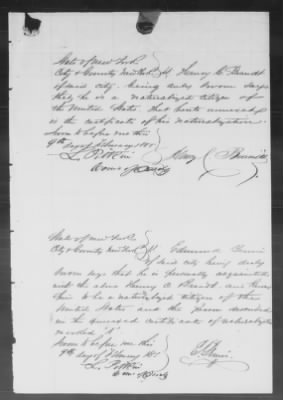 State of New York
City & County New York } ss Henry C Brandt
of said city being duly sworn says
that he is a naturalized citizen of
the United States that hereto annexed
is the certificate of his naturalization
Sworn to before me this
9th day of February 185
Henry C Brandt
State of New York
City & County New York } ss Edmund
of said city being duly
sworn says that he is personally acquainted
with the above Henry C Brandt and knows
him to be a naturalized citizen of the
United States and the person described
in the annexed certificate of naturalization
marked "A"
Sworn to before me this
9th day of February 185